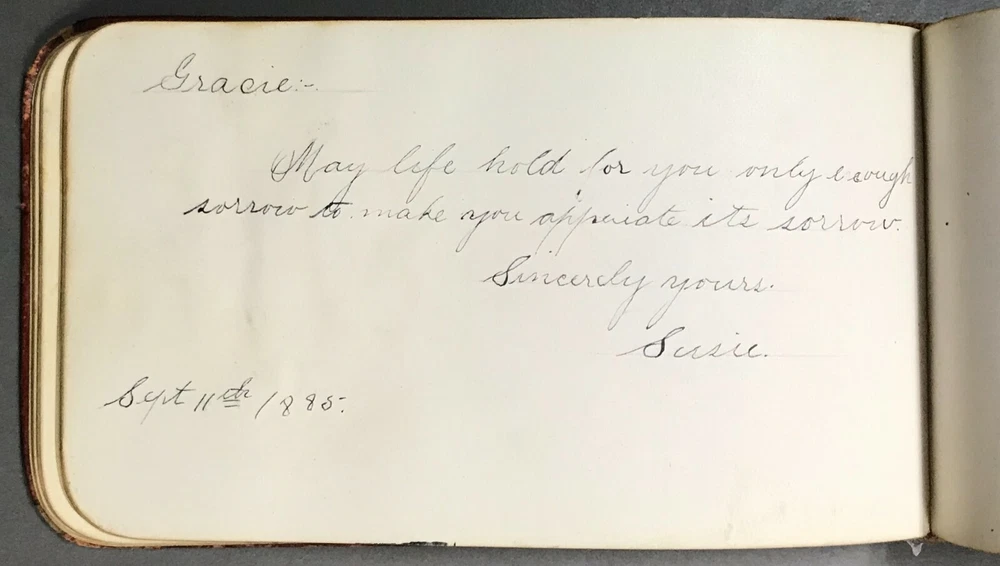 Gracie:-
May life hold for you only enough
sorrow to make you appreciate its sorrow.
Sincerely yours.
Susie.
Sept 11th 1885.